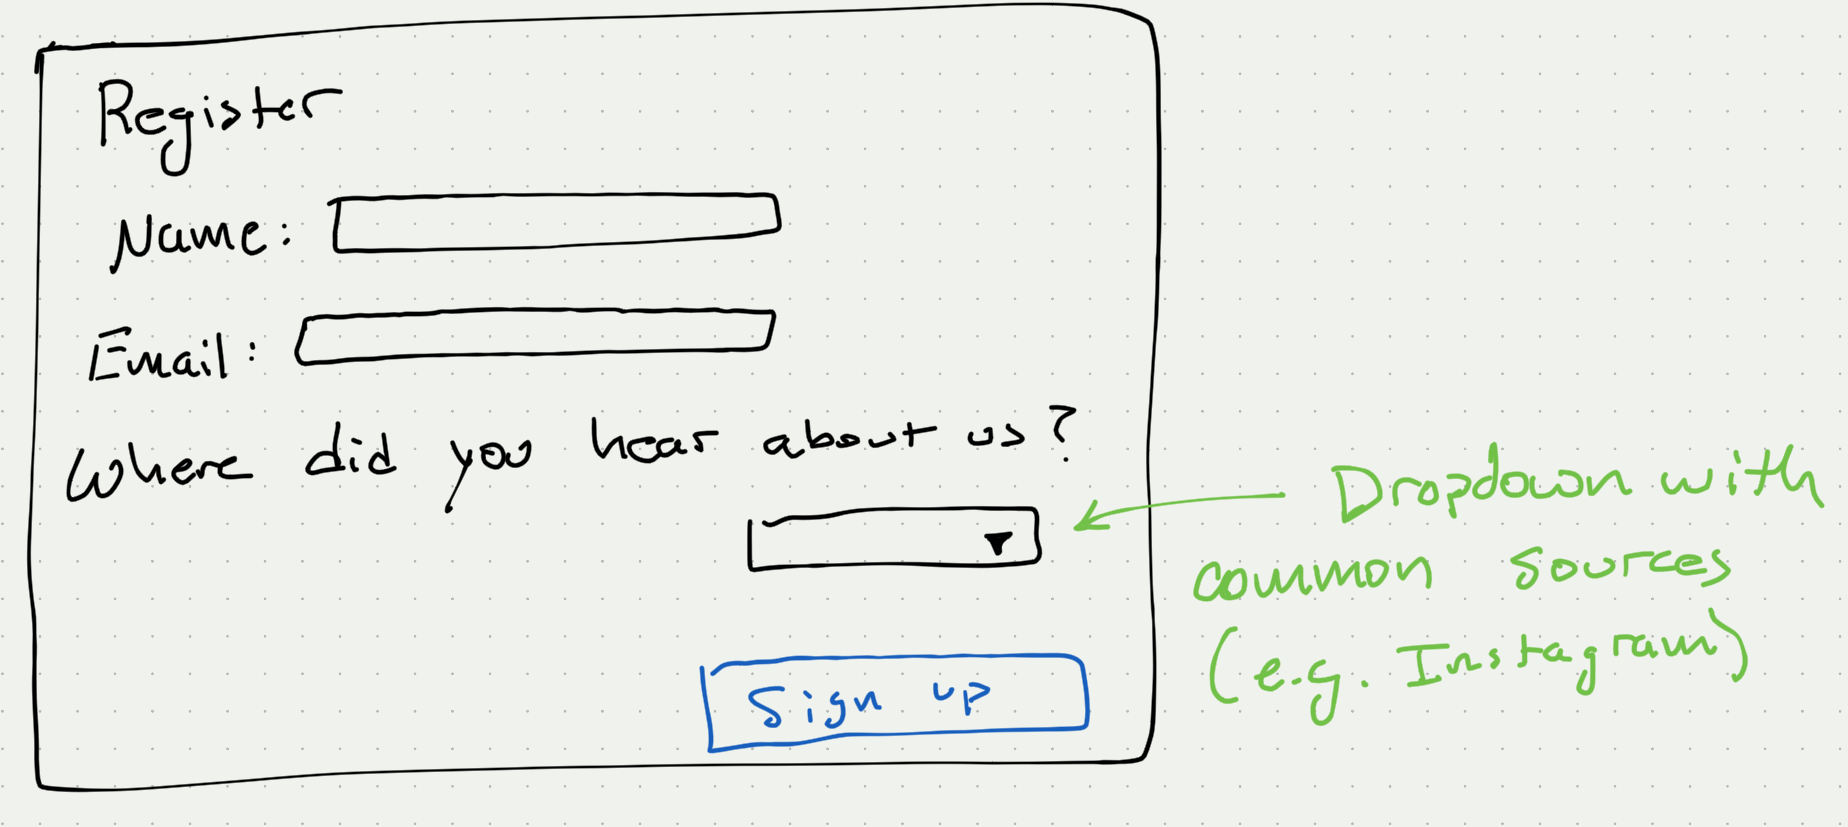 Register
Name:
Email:
Where did you hear about us?
Dropdown with
common sources
(e.g. Instagram)
Sign up